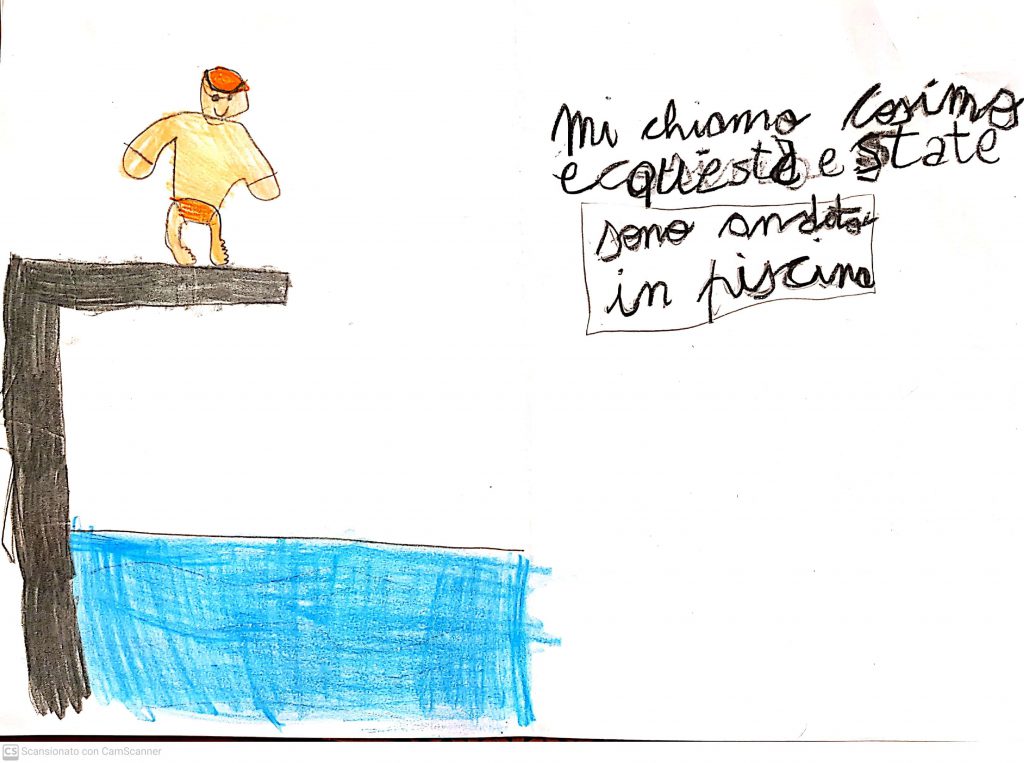 Mi chiamo Cosimo
e questa estate
sono andato
in piscina
CS Scansionato con CamScanner